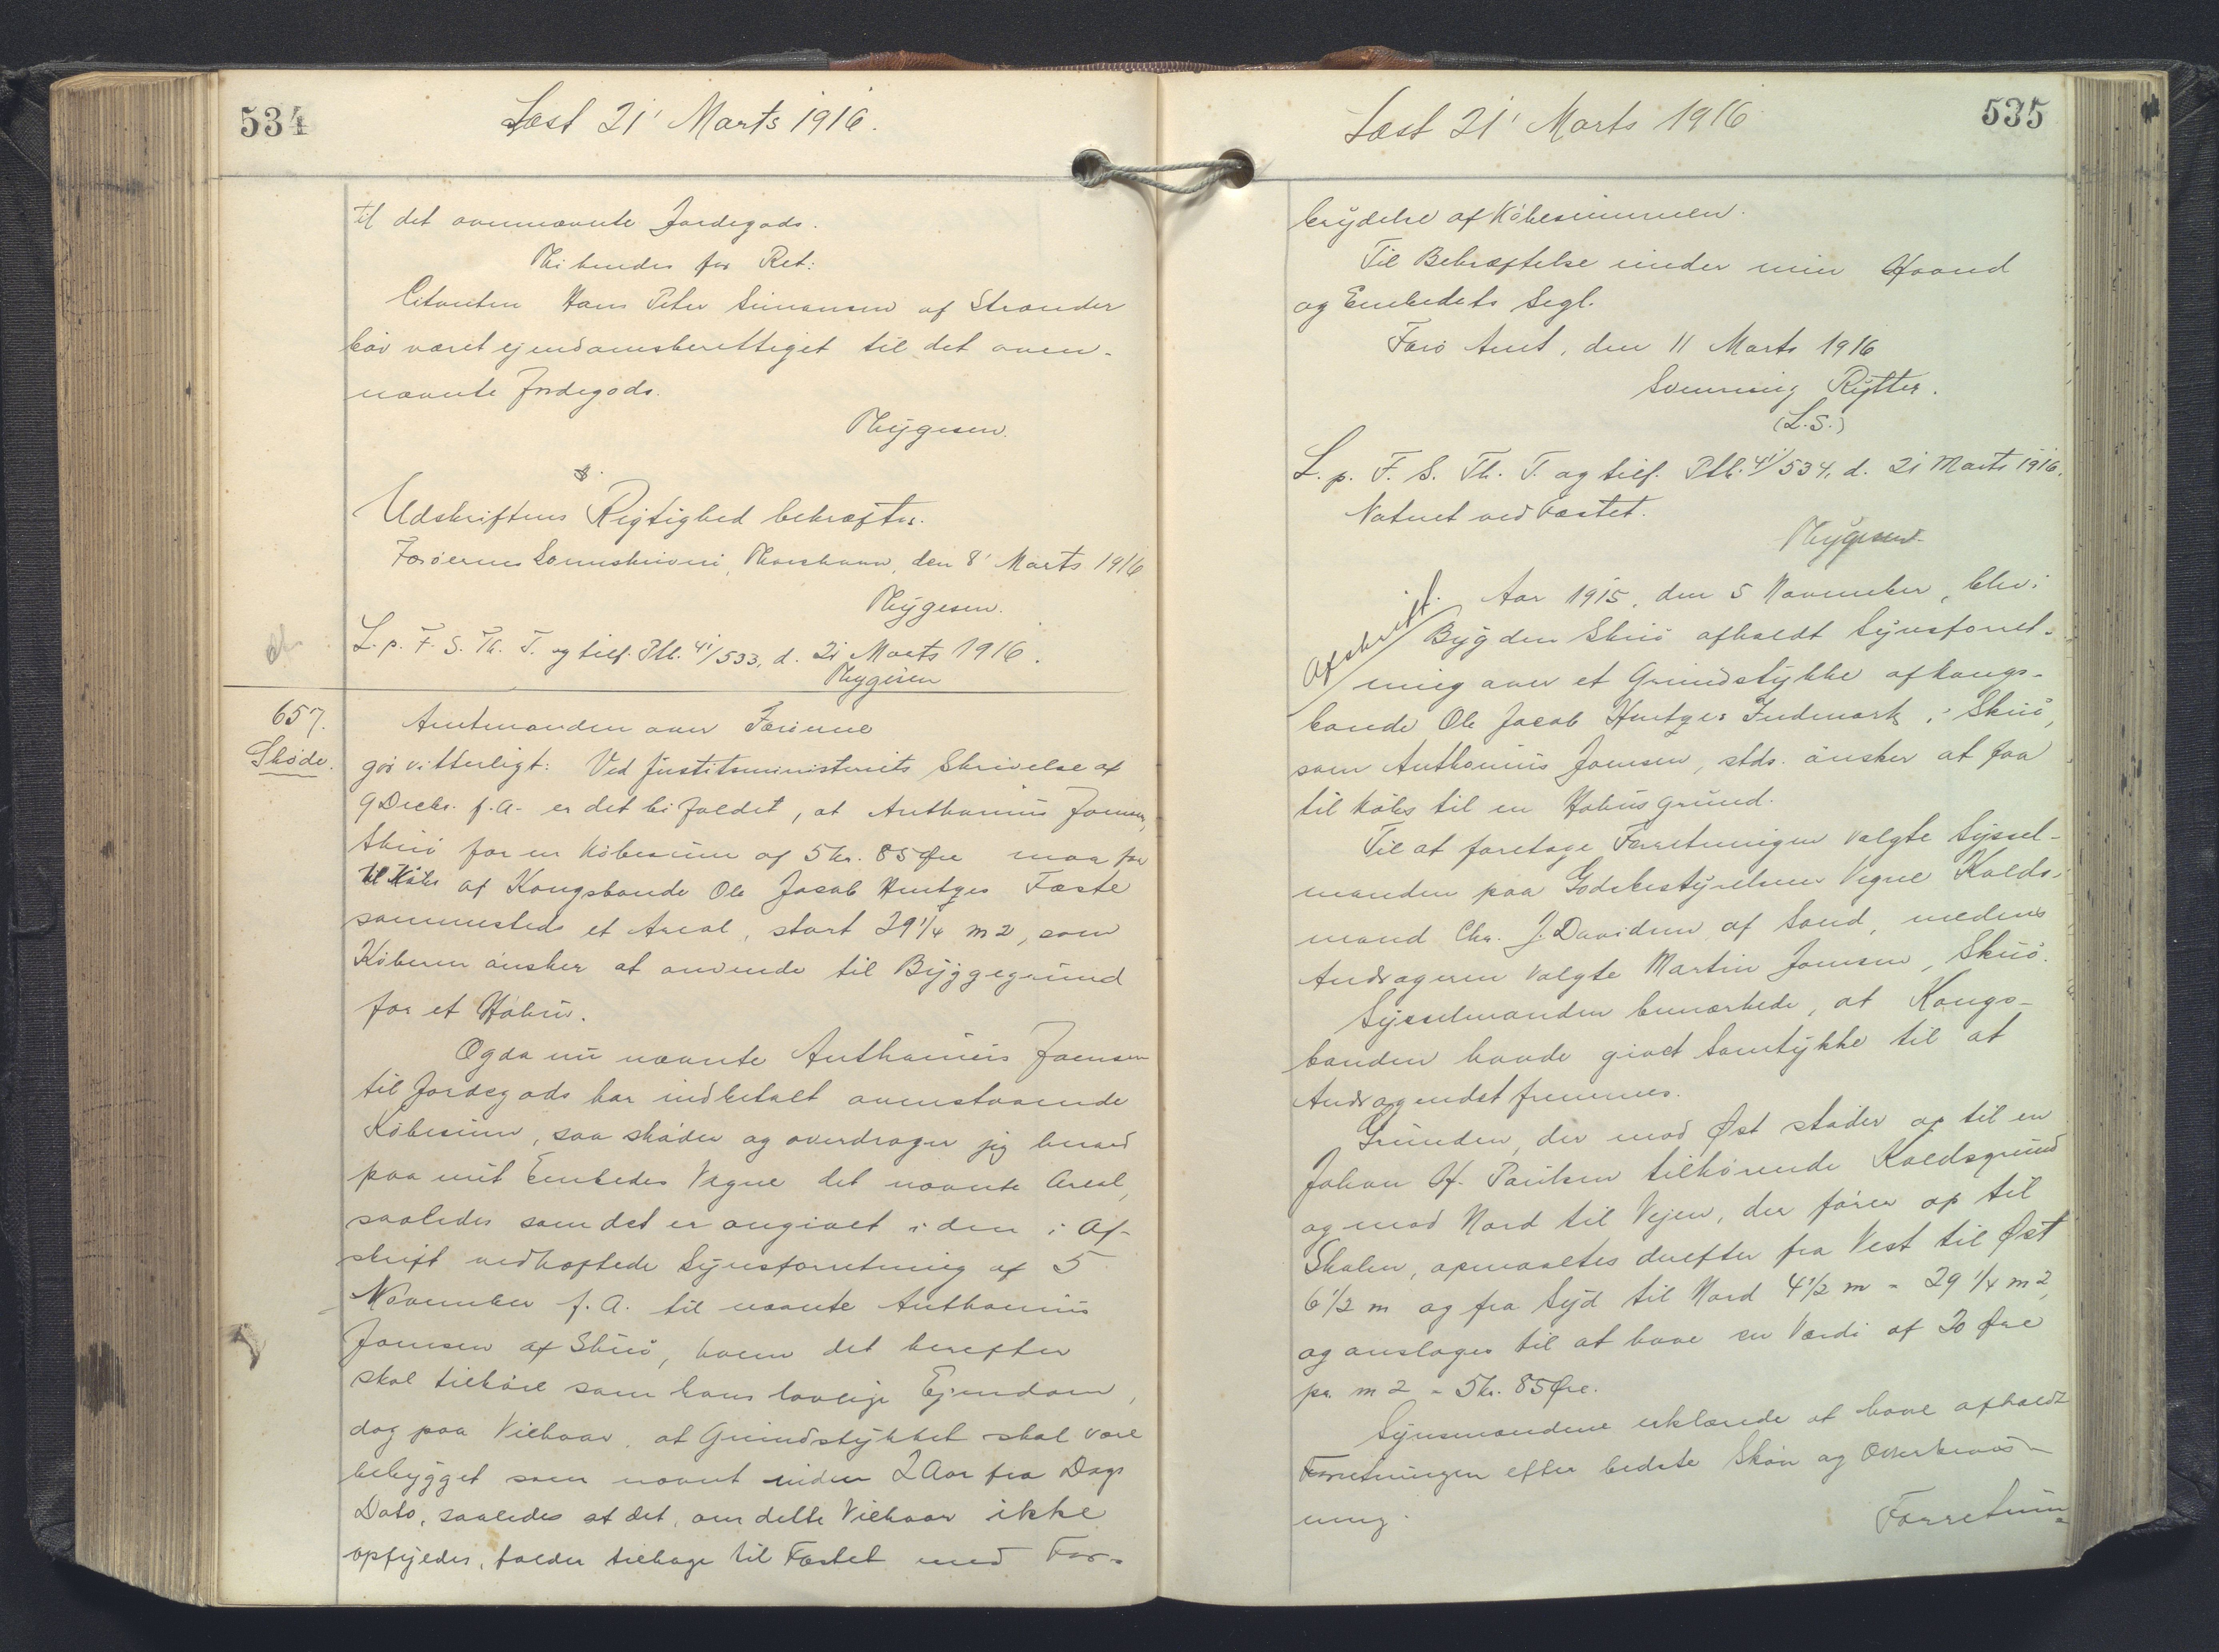 534
Læst 21' Marts 1916.
til det ovennævnte Jordegods.
Thi kendes for Ret:
Citanten Hans Peter Simonsen af Strænder
bør været ejendomsberettiget til det oven-
nævnte Jordegods.
Thygesen.
Udskriftens Rigtighed bekræftes.
Færøernes Sorenskriveri, Thorshavn, den 8' Marts 1916
Thygesen.
L. p. F. S. Th. T. og tilf. Ptb. 41/533, d. 21 Marts 1916.
Thygesen
657.
Skøde.
Amtmanden over Færøerne
gør vitterligt: Ved Justitsministeriets Skrivelse af
9 Decbr. f.A. er det bifaldet, at Anthonius Joensen,
Skuø for en Købesum af 5 Kr. 85 Øre maa faa
til Købs af Kongsbonde Ole Jacob Hentzes Fæste
sammesteds et Areal, stort 29 1/4 m2, som
Køberen ønsker at anvende til Byggegrund
for et Høhus.
Og da nu nævnte Anthonius Joensen
til Jordegods har indbetalt ovenstaaende
Købesum, saa skøder og overdrager jeg herved
paa mit Embedes Vegne det nævnte Areal,
saaledes som det er angivet i den i Af-
skrift vedhæftede Synsforretning af 5
November f. A. til nævnte Anthonius
Joensen af Skuø, hvem det herefter
skal tilhøre som hans lovlige Ejendom,
dog paa Vilkaar, at Grundstykket skal være
bebygget som nævnt inden 2 Aar fra Dags
Dato, saaledes at det, om dette Vilkaar ikke
opfyldes, falder tilbage til Fæstet med For-
535
Læst 21' Marts 1916
brydelse af Købesummen.
Til Bekræftelse under min Haand
og Embedets Segl.
Færø Amt, den 11 Marts 1916
Svenning Rytter.
(L.S.)
L. p. F. S. Th. T. og tilf. Ptb. 41/534, d. 21 Marts 1916.
Noteret ved Fæstet.
Thygesen.
Afskrift.
Aar 1915, den 5 November, blev i
Bygden Skuø afholdt Synsforret-
ning over et Grundstykke af Kongs-
bonde Ole Jacob Hentzes Indmark i Skuø,
som Anthonius Joensen, stds. ønsker at faa
til Købs til en Høhusgrund.
Til at foretage Forretningen valgte Syssel-
manden paa Godsbestyrelsens Vegne Kolds-
mand Chr. J. Davidsen af Sand, medens
Andrageren valgte Martin Joensen, Skuø.
Sysselmanden bemærkede, at Kongs-
bonden havde givet Samtykke til at
Andragendet fremmes.
Grunden, der mod Øst støder op til en
Johan Hf. Poulsen tilhørende Koldsgrund
og mod Nord til Vejen, der fører op til
Skolen, opmaaltes derefter fra Vest til Øst
6 1/2 m og fra Syd til Nord 4 1/2 m = 29 1/4 m2,
og ansloges til at have en Værdi af 20 Øre
pr. m2 = 5 Kr. 85 Øre.
Synsmændene erklærede at have afholdt
Forretningen efter bedste Skøn og Overbevis-
ning.
Forretnin-